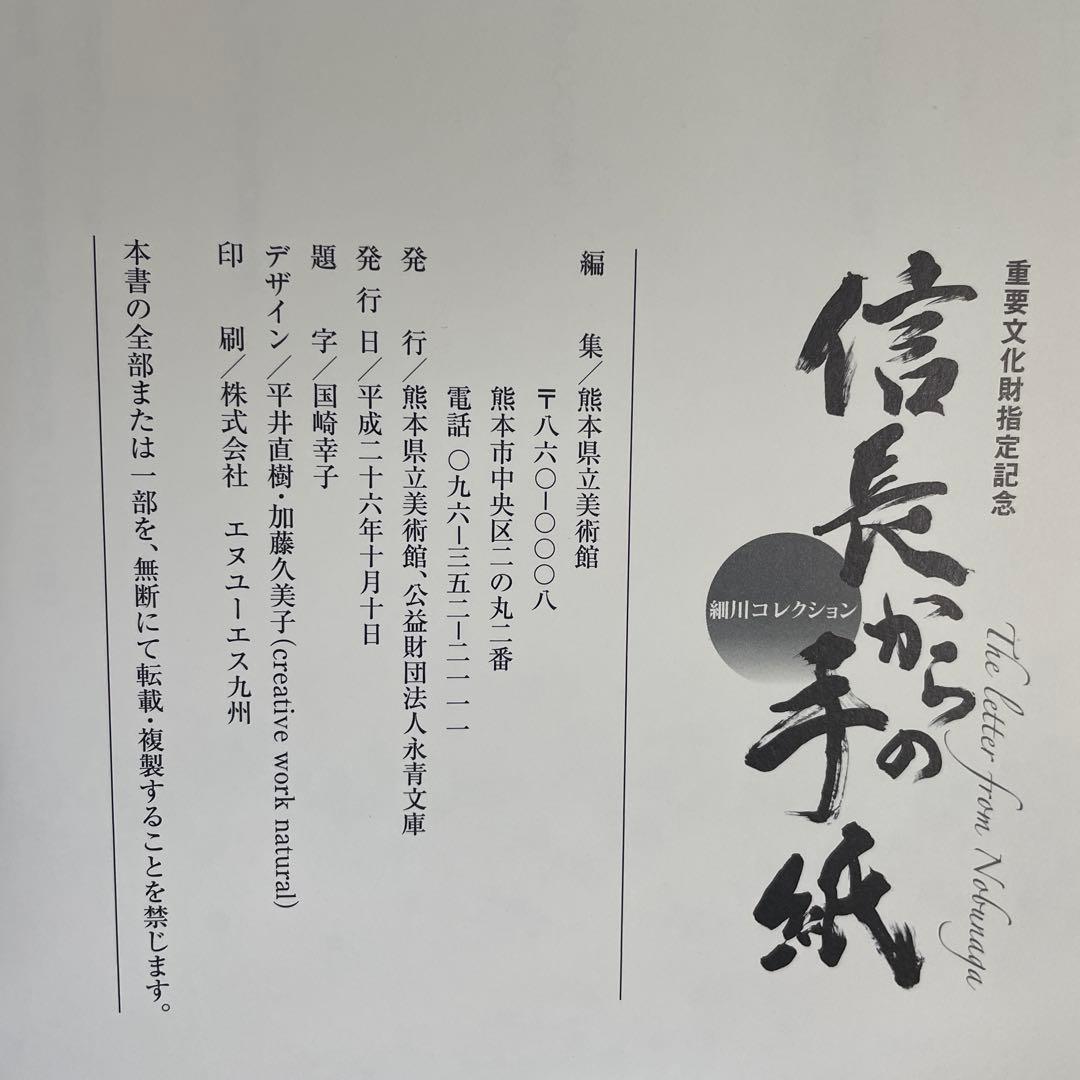 重要文化財指定記念
信長からの手紙
細川コレクション
The letter from Nobunaga
編　集／熊本県立美術館
〒八六〇―〇〇〇八
熊本市中央区二の丸二番
電話 〇九六―三五二―二一一一
発　行／熊本県立美術館、公益財団法人永青文庫
発行日／平成二十六年十月十日
題　字／国崎幸子
デザイン／平井直樹・加藤久美子(creative work natural)
印　刷／株式会社　エヌユーエス九州
本書の全部または一部を、無断にて転載・複製することを禁じます。